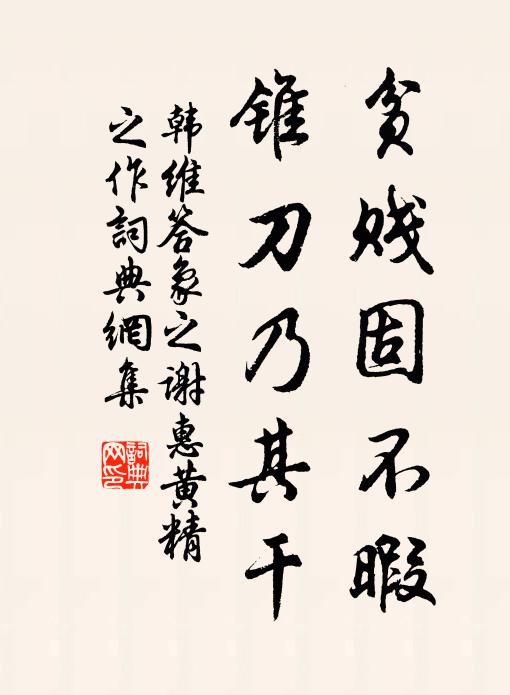 贫贱固不暇
锥刀乃其干
韩维答象之谢惠黄精
之作詞典網集
詞典網印